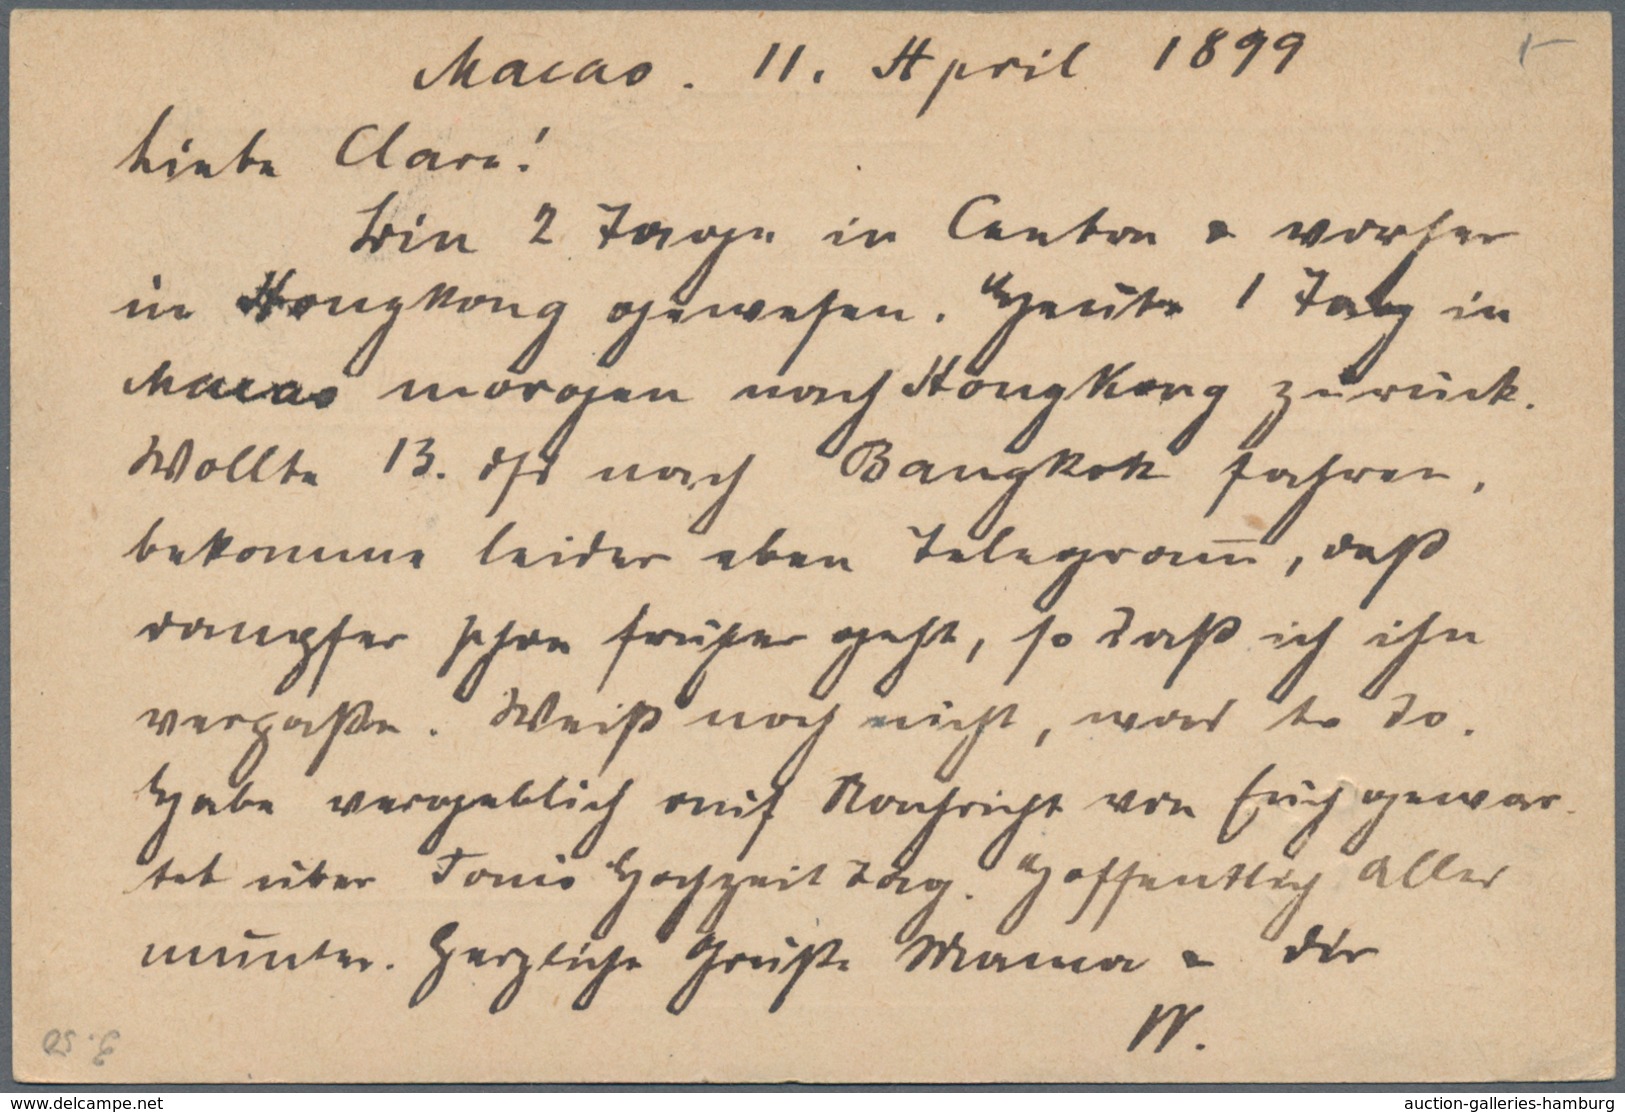 Macao. 11. April 1899
Liebe Clara!
Bin 2 Tage in Canton & vorher
in Hongkong gewesen. Heute 1 Tag in
Macao morgen nach Hongkong zurück.
Wollte 13. dss nach Bangkok fahren,
bekomme leider eben Telegram̅, daß
dampfer schon früher geht, so daß ich ihn
verpaße. Weiß noch nicht, was to do.
Habe vergeblich auf Nachricht von Euch gewar-
tet über Tonis Hochzeit tag. Hoffentlich Alles
munter. Herzliche Grüße Mama & dir
W.
www.delcampe.net
auction-galleries-hamburg